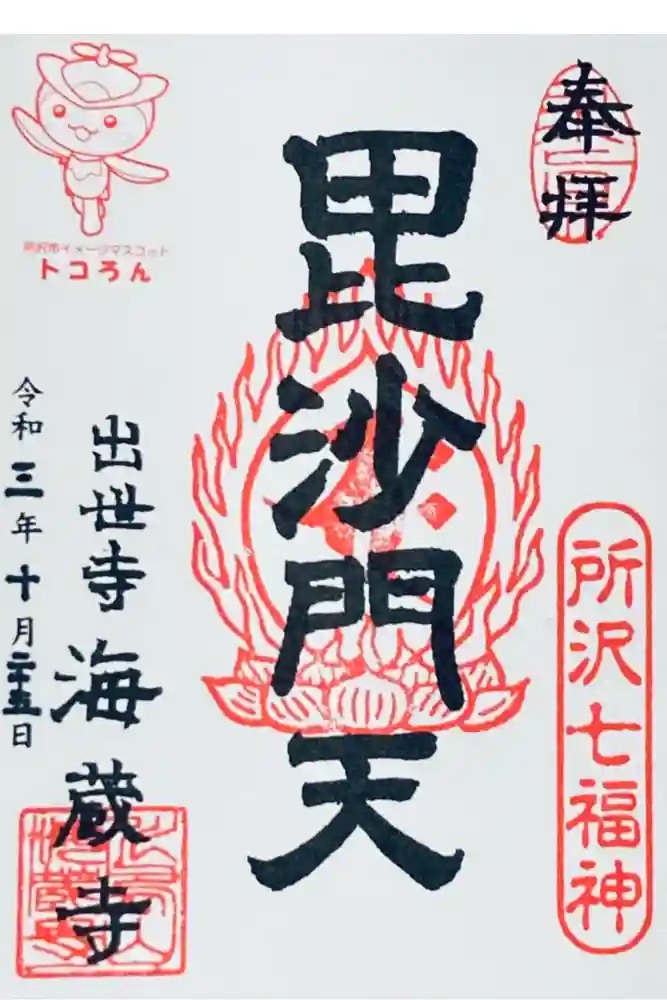 奉拝
毘沙門天
所沢七福神
所沢市イメージマスコット
トコろん
出世寺 海蔵寺
令和三年十月二十五日